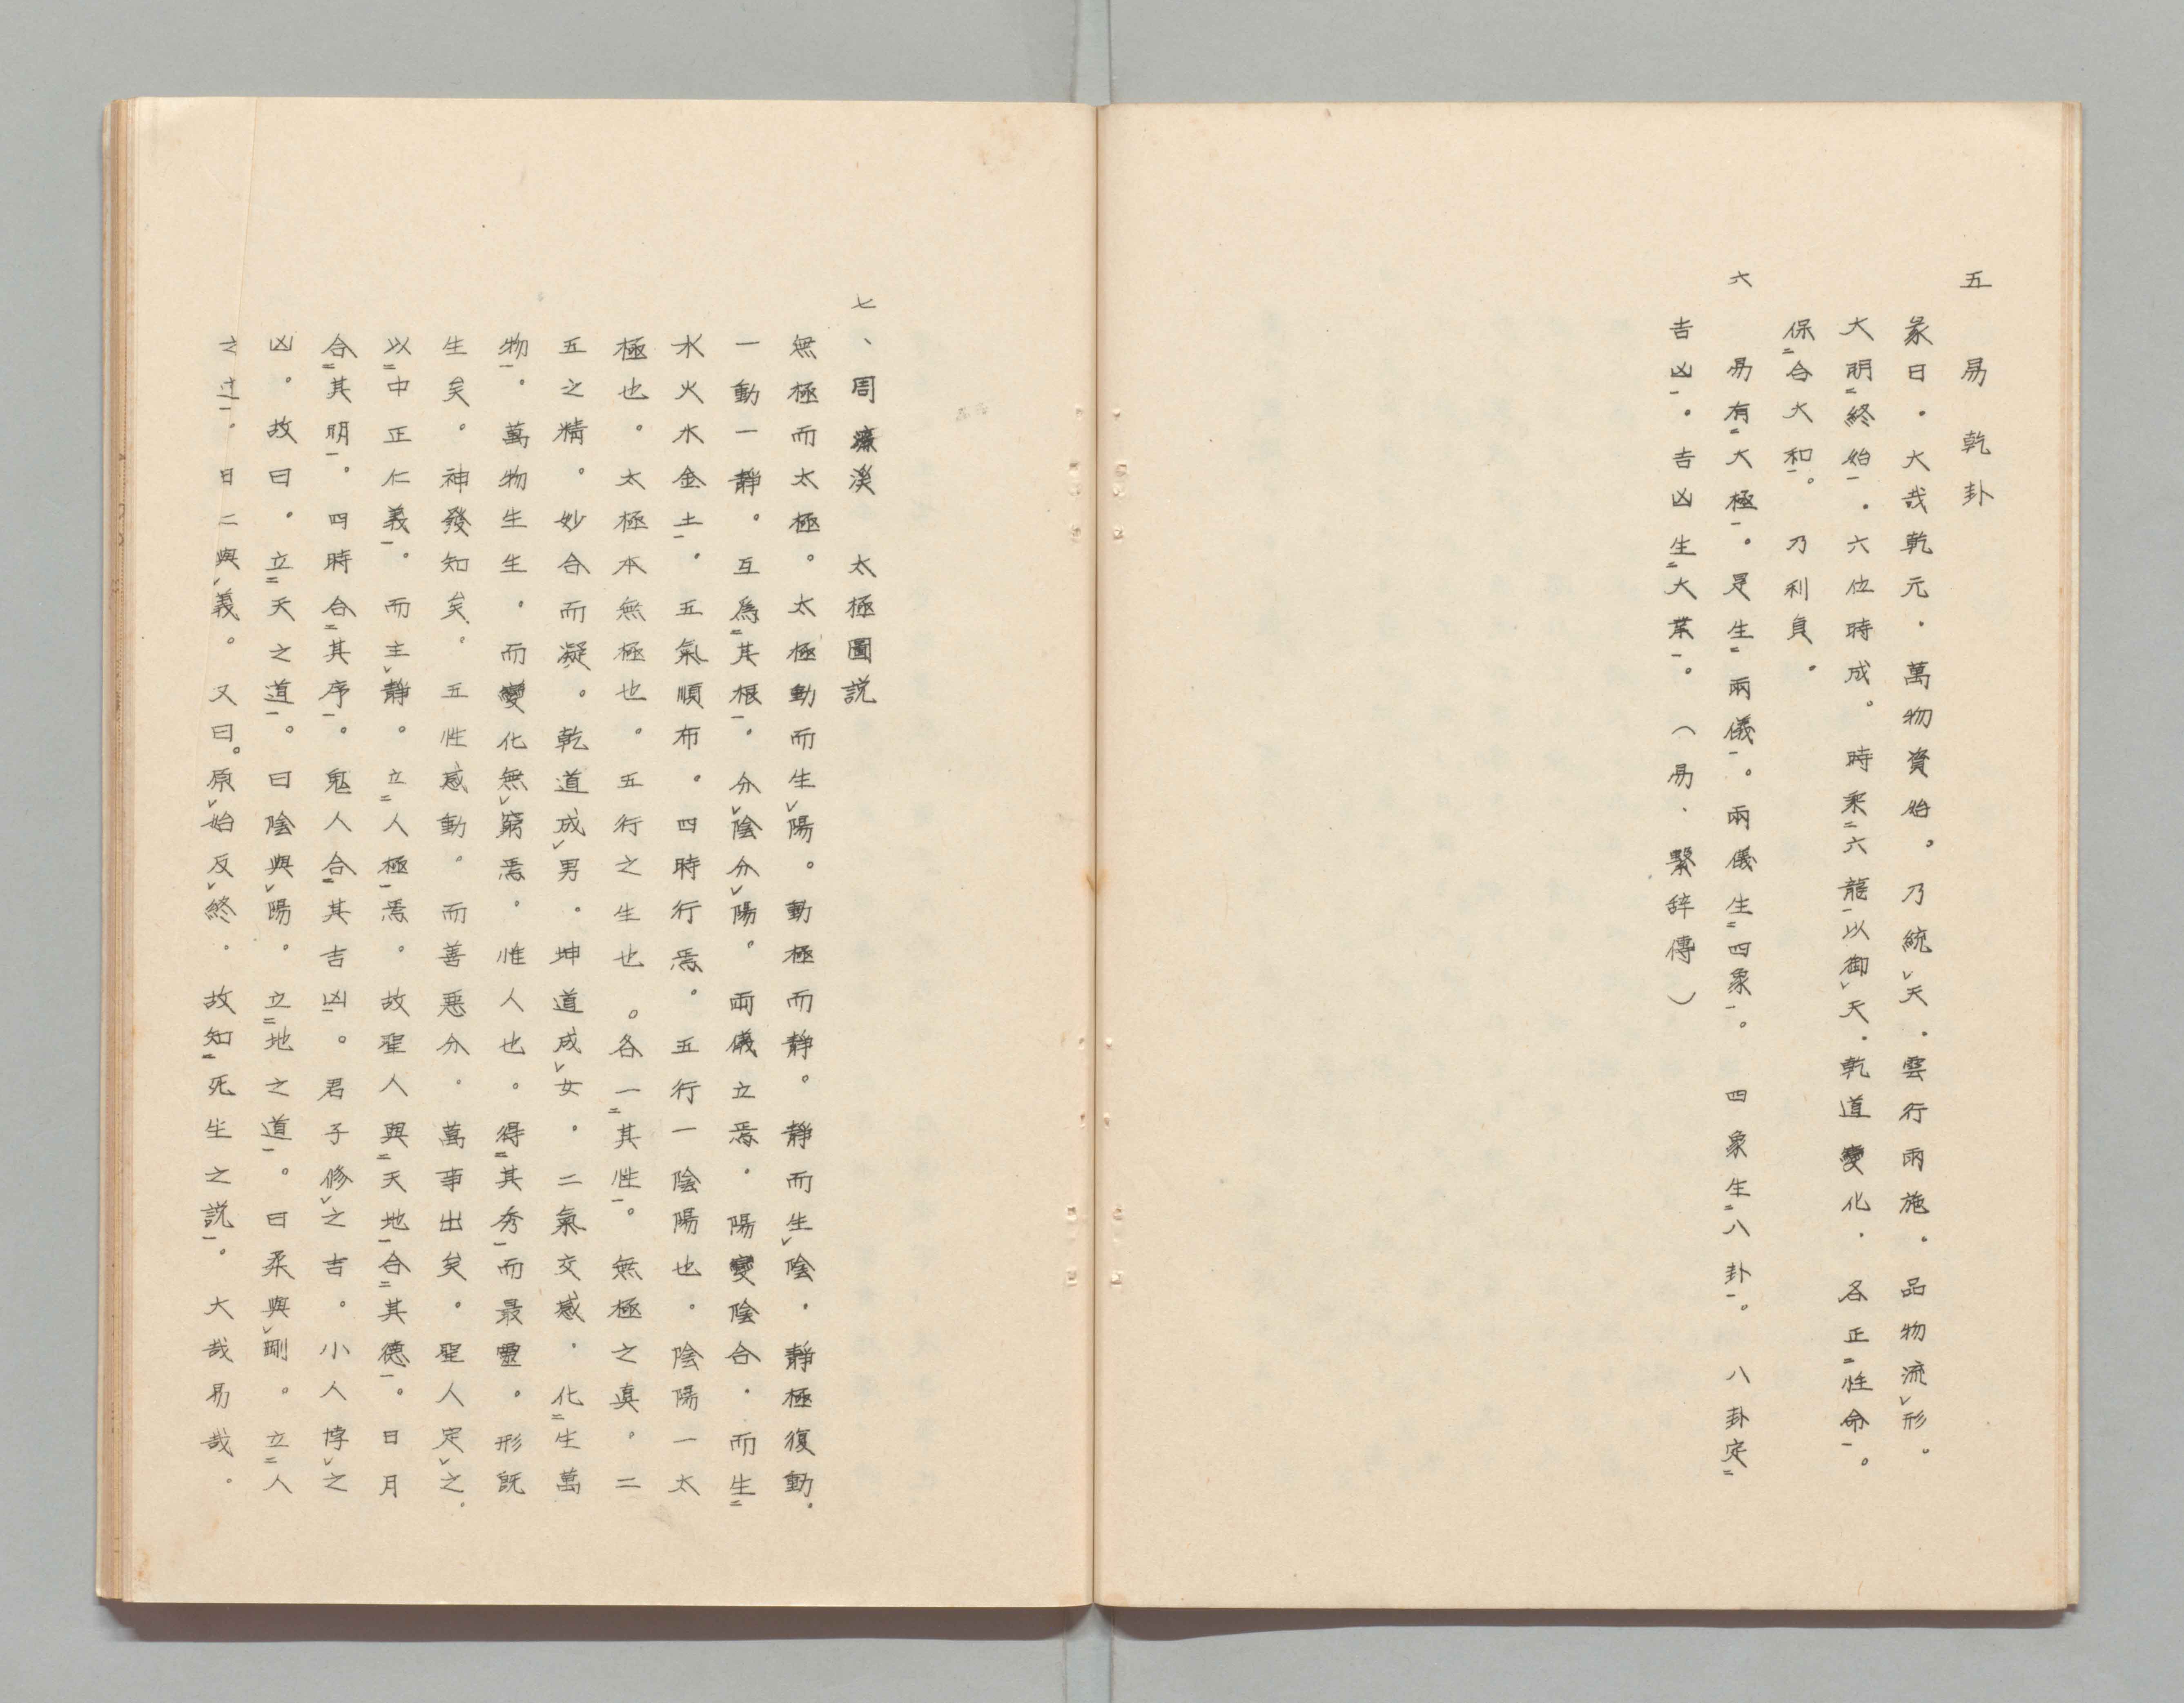 五　易　乾　卦
彖曰。大哉乾元。萬物資始。乃統レ天。雲行雨施。品物流レ形。
大明二終始一。六位時成。時乘二六龍一以御レ天。乾道變化。各正二性命一。
保二合大和一。乃利貞。
六　易有二大極一。是生二兩儀一。兩儀生二四象一。四象生二八卦一。八卦定二
吉凶一。吉凶生二大業一。（易、繋辞傳）
七、周濂溪　太極圖説
無極而太極。太極動而生レ陽。動極而静。静而生レ陰。静極復動。
一動一静。互爲二其根一。分レ陰分レ陽。兩儀立焉。陽變陰合。而生二
水火木金土一。五氣順布。四時行焉。五行一陰陽也。陰陽一太
極也。太極本無極也。五行之生也。各一二其性一。無極之真。二
五之精。妙合而凝。乾道成レ男。坤道成レ女。二氣交感。化二生萬
物一。萬物生生。而變化無レ窮焉。惟人也。得二其秀一而最靈。形既
生矣。神發知矣。五性感動。而善悪分。萬事出矣。聖人定レ之。
以二中正仁義一。而主レ静。立二人極一焉。故聖人與二天地一合二其德一。日月
合二其明一。四時合二其序一。鬼人合二其吉凶一。君子修レ之吉。小人悖レ之
凶。故曰。立二天之道一。曰陰與レ陽。立二地之道一。曰柔與レ剛。立二人
之道一。曰仁與レ義。又曰。原レ始反レ終。故知二死生之説一。大哉易哉。